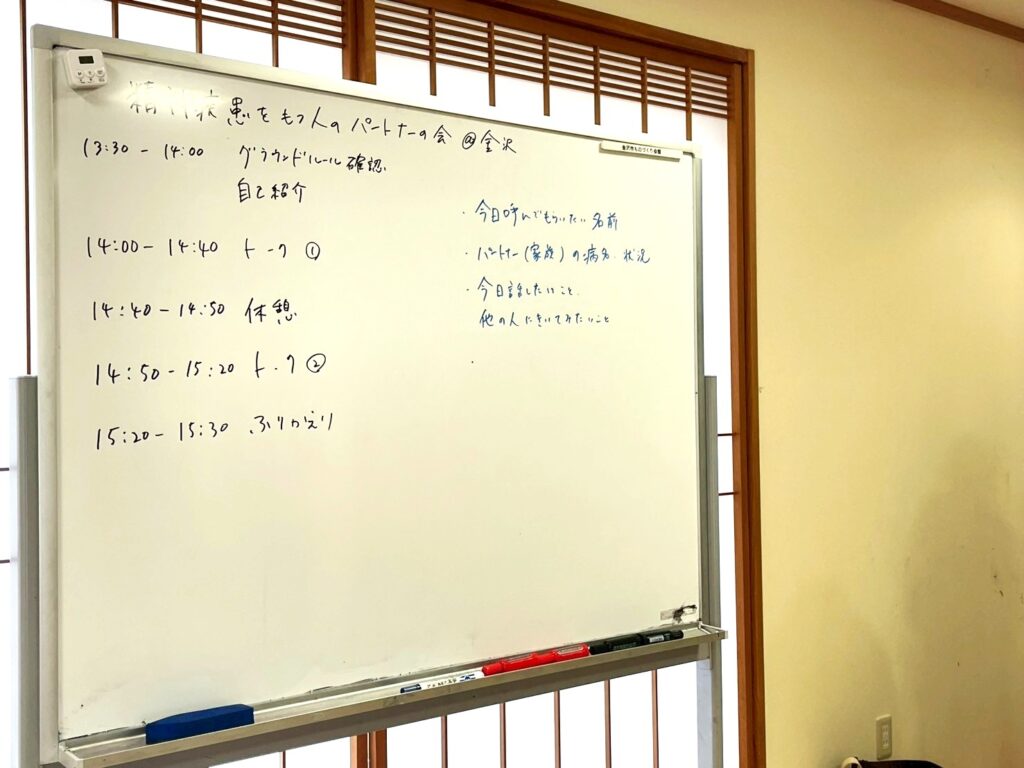 精神疾患をもつ人のパートナーの会 @金沢
13:30 - 14:00 グラウンドルール確認
自己紹介
14:00 - 14:40 トーク ①
14:40 - 14:50 休憩
14:50 - 15:20 トーク ②
15:20 - 15:30 ふりかえり
・今日呼んでもらいたい名前
・パートナー(家族)の病名・状況
・今日話したいこと、
他の人にきいてみたいこと
金沢市ものづくり会館